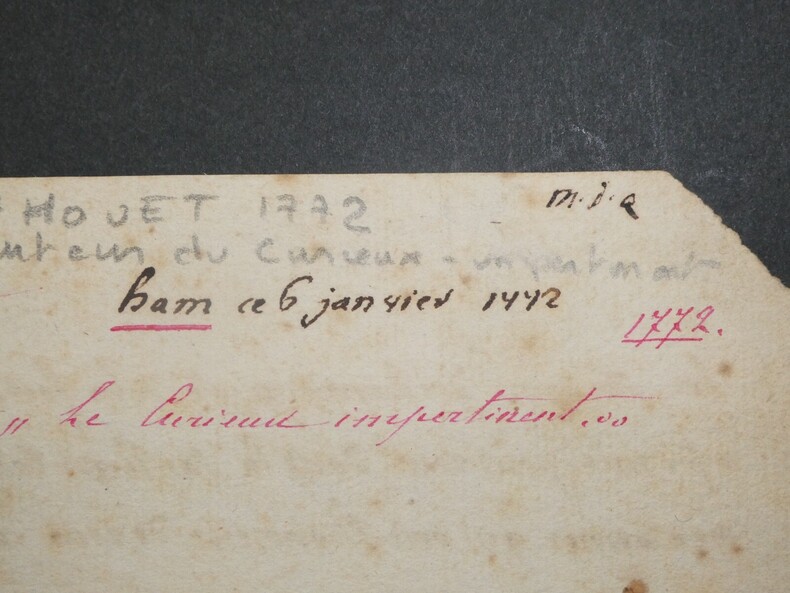 HOUET 1772
m.d.q
auteur du Curieux - impertinent
ham ce 6 janvier 1772
1772.
" Le Curieux impertinent.